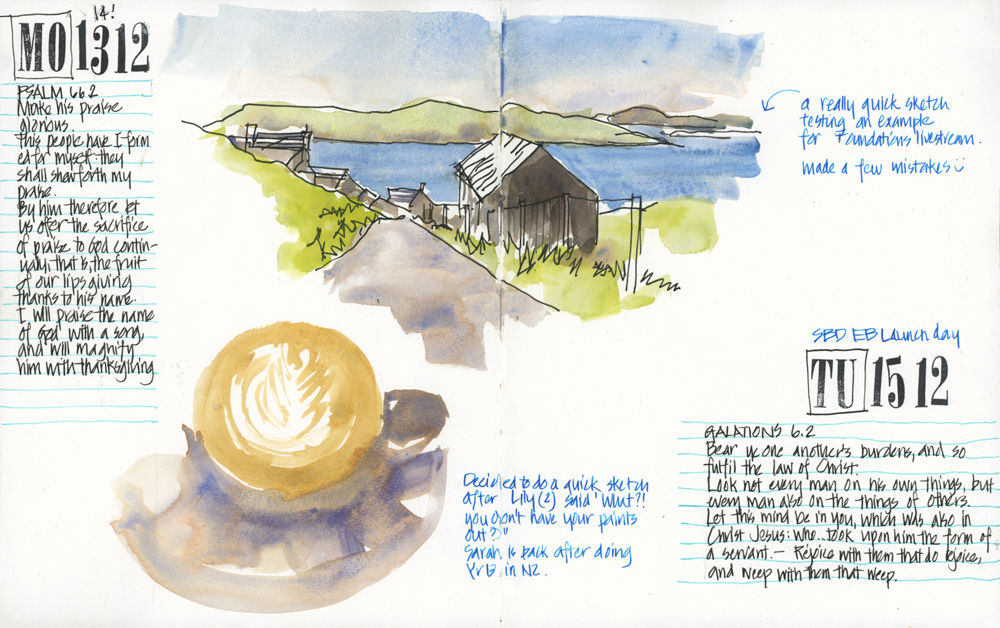 14!
MO 13 12
PSALM 66.2
Make his praise
glorious.
This people have I form
ed for myself: they
shall shew forth my
praise.
By him therefore let
us offer the sacrifice
of praise to God contin-
ually, that is, the fruit
of our lips giving
thanks to his name.
I will praise the name
of God with a song,
and will magnify
him with thanksgiving
a really quick sketch
testing an example
for Foundations livestream.
made a few mistakes
Decided to do a quick sketch
after Lily (?) said "What?!
you don't have your paints
out?"
Sarah is back after doing
Yr 13 in NZ.
SBD EB Launch day
TU 15 12
GALATIONS 6.2
Bear ye one another's burdens, and so
fulfil the law of Christ.
Look not every man on his own things, but
every man also on the things of others.
Let this mind be in you, which was also in
Christ Jesus: who.. took upon him the form of
a servant. – Rejoice with them that do rejoice,
and weep with them that weep.